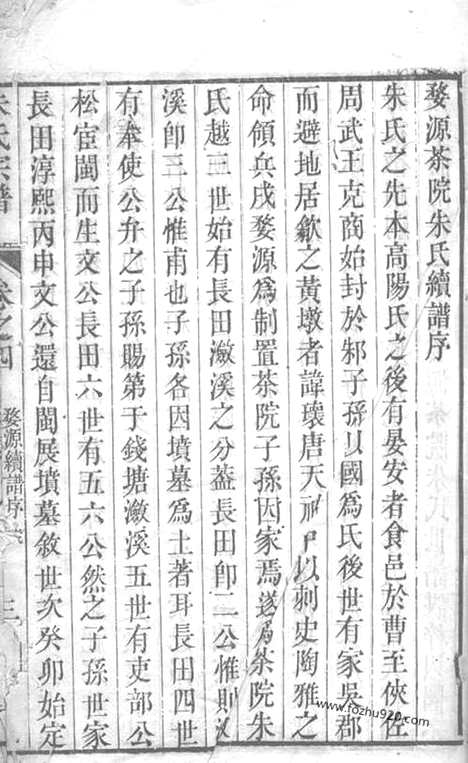 婺源茶院朱氏續譜序
朱氏之先本高陽氏之後有晏安者食邑於曹至俠佐
周武王克商始封於邾子孫以國爲氏後世有家吳郡
而避地居歙之黃墩者諱瓌唐天祐中以刺史陶雅之
命領兵戌婺源爲制置茶院子孫因家焉遂爲茶院朱
氏越三世始有長田瀲溪之分葢長田卽二公惟則
溪卽三公惟甫也子孫各因墳墓爲土著耳長田四世
有奉使公弁之子孫賜第于錢塘瀲溪五世有吏部公
松宦閩而生文公長田六世有五六公然之子孫世家
長田淳熙丙申文公還自閩展墳墓敘世次癸卯始定
朱氏宗譜
卷之四
婺源續譜序
三
www.fozhu920.com